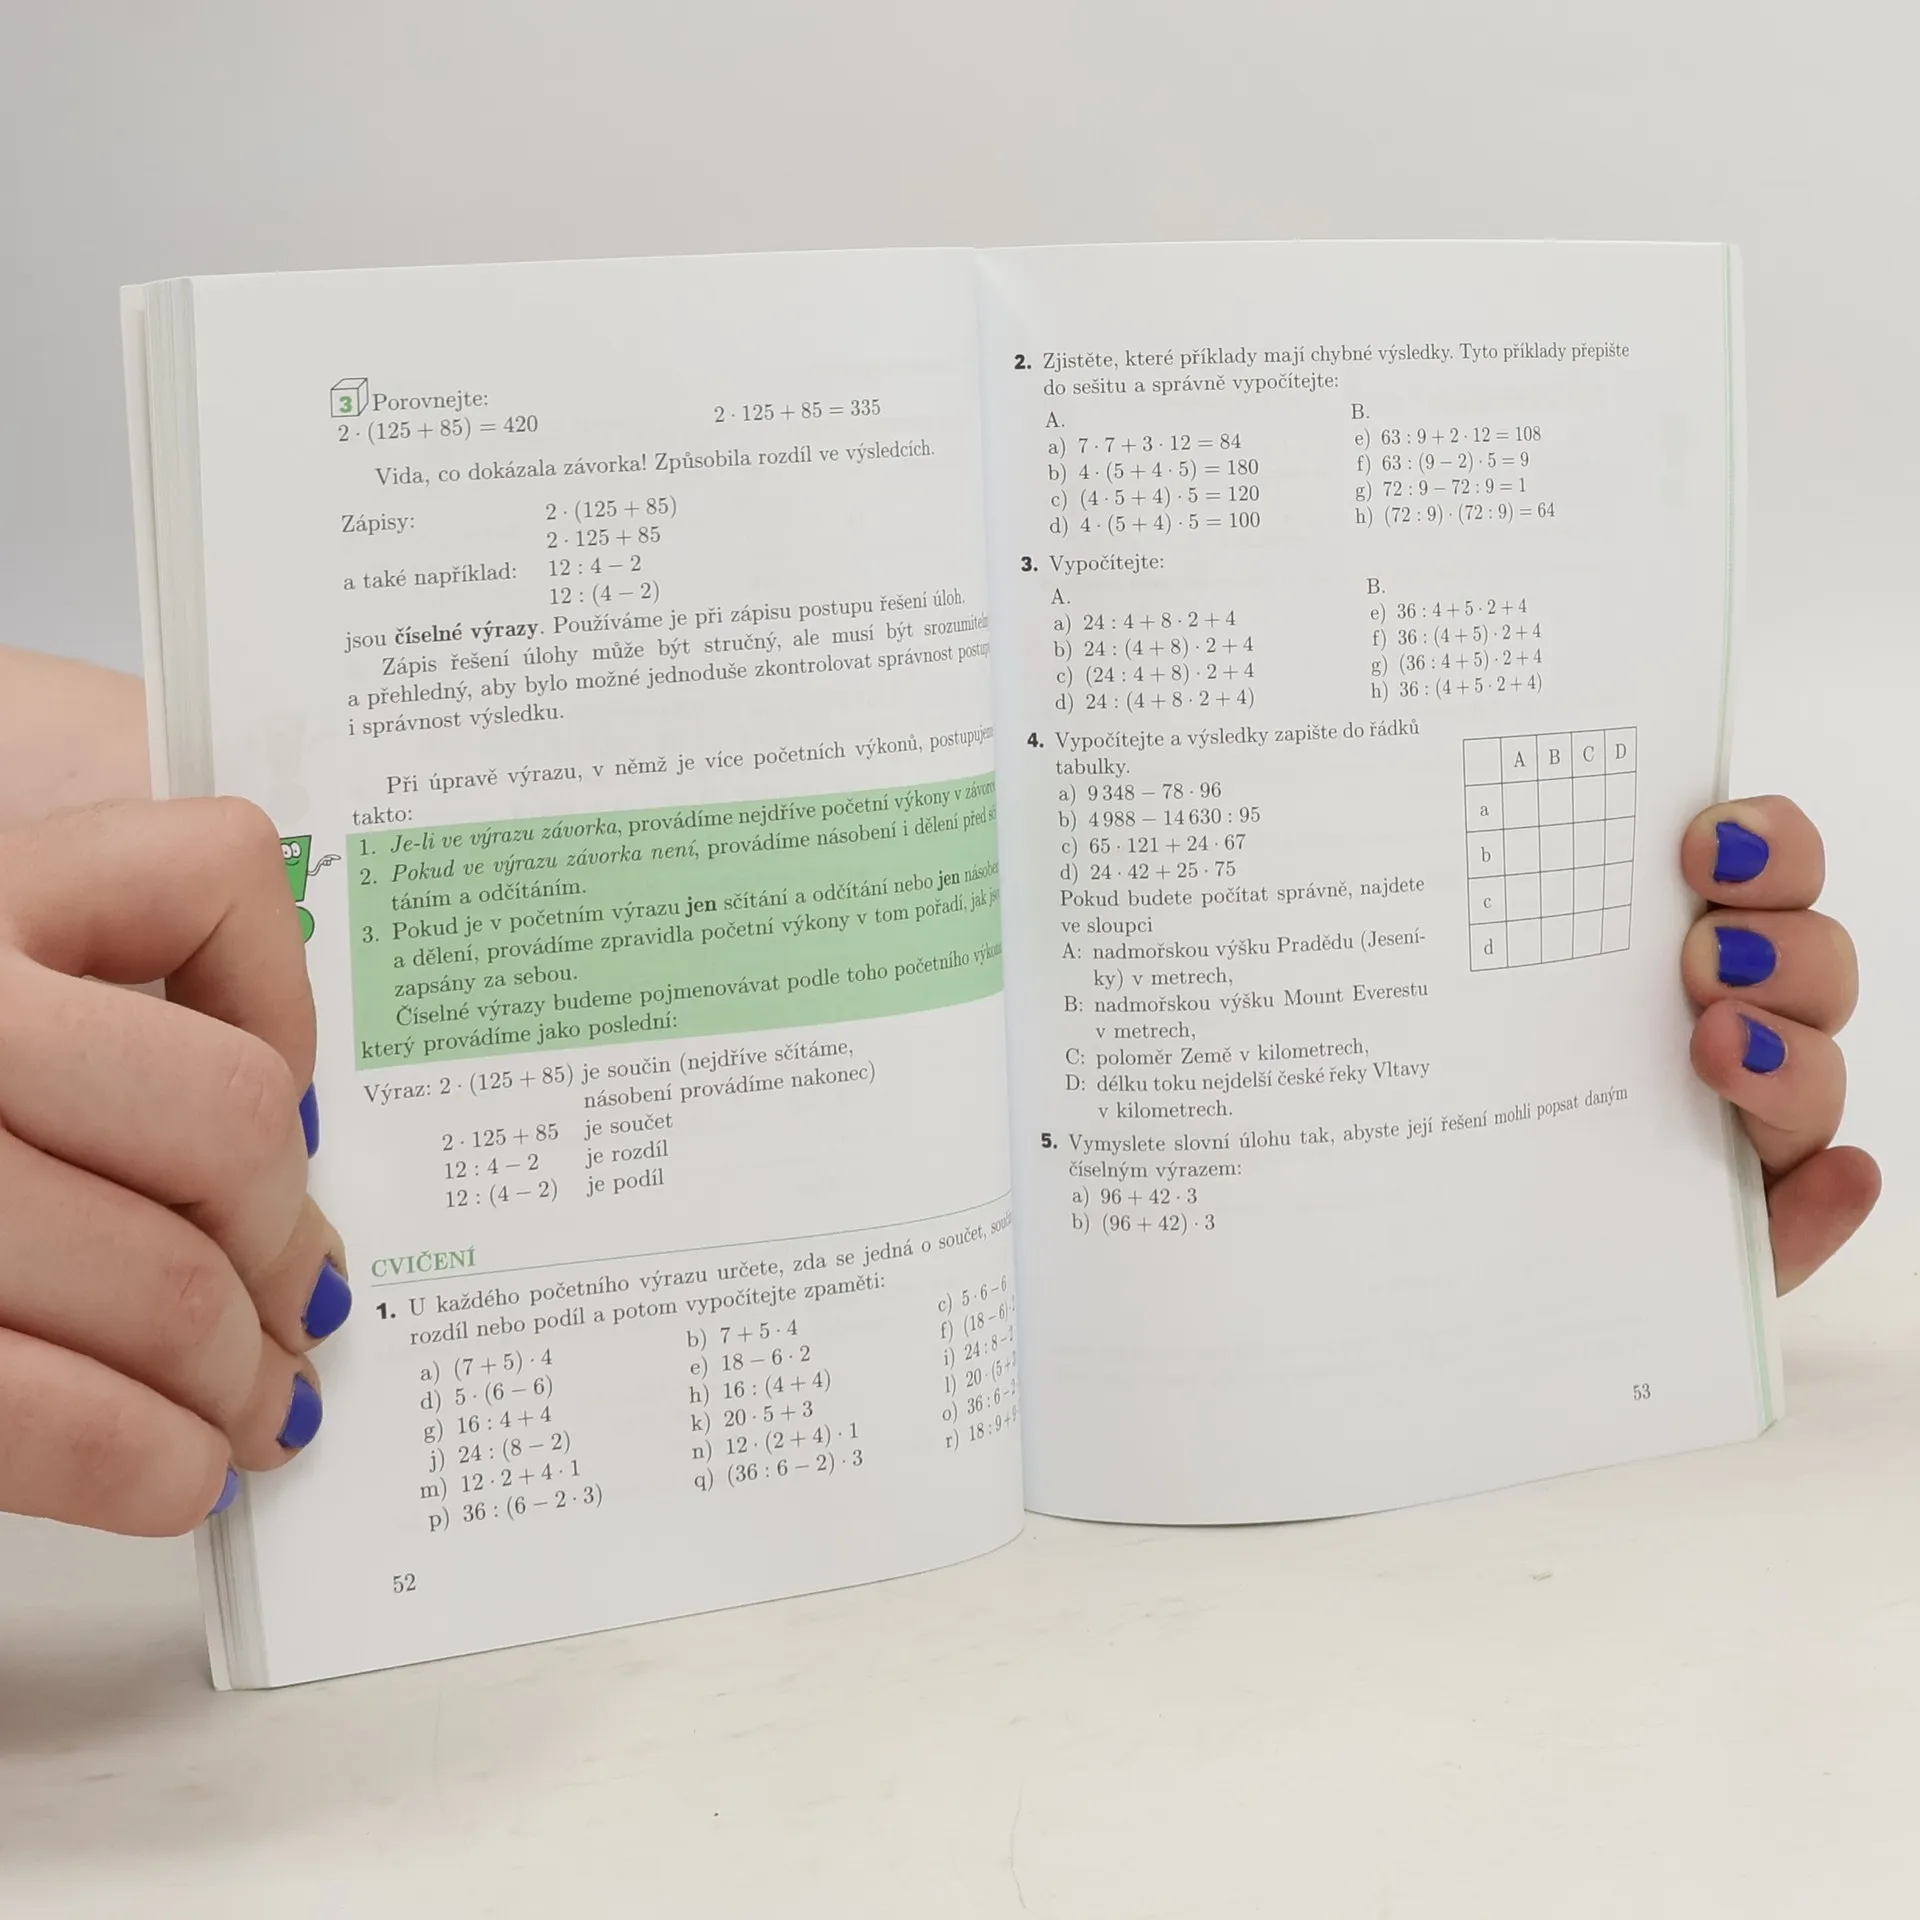 3 Porovnejte:
2 · (125 + 85) = 420 2 · 125 + 85 = 335
Vida, co dokázala závorka! Způsobila rozdíl ve výsledcích.
Zápisy: 2 · (125 + 85)
2 · 125 + 85
a také například: 12 : 4 − 2
12 : (4 − 2)
jsou číselné výrazy. Používáme je při zápisu postupu řešení úloh.
Zápis řešení úlohy může být stručný, ale musí být
a přehledný, aby bylo možné jednoduše zkontrolovat správnost
i správnost výsledku.
Při úpravě výrazu, v němž je více početních výkonů,
takto:
1. Je-li ve výrazu závorka, provádíme nejdříve početní výkony v
2. Pokud ve výrazu závorka není, provádíme násobení i dělení před
táním a odčítáním.
3. Pokud je v početním výrazu jen sčítání a odčítání nebo jen
a dělení, provádíme zpravidla početní výkony v tom pořadí, jak
zapsány za sebou.
Číselné výrazy budeme pojmenovávat podle toho početního
který provádíme jako poslední:
Výraz: 2 · (125 + 85) je součin (nejdříve sčítáme,
násobení provádíme nakonec)
2 · 125 + 85 je součet
12 : 4 − 2 je rozdíl
12 : (4 − 2) je podíl
CVIČENÍ
1. U každého početního výrazu určete, zda se jedná o součet,
rozdíl nebo podíl a potom vypočítejte zpaměti:
a) (7 + 5) · 4 b) 7 + 5 · 4 c) 5 · 6 − 6
d) 5 · (6 − 6) e) 18 − 6 · 2 f) (18 − 6) ·
g) 16 : 4 + 4 h) 16 : (4 + 4) i) 24 : 8 −
j) 24 : (8 − 2) k) 20 · 5 + 3 l) 20 · (5 +
m) 12 · 2 + 4 · 1 n) 12 · (2 + 4) · 1 o) 36 : 6 −
p) 36 : (6 − 2 · 3) q) (36 : 6 − 2) · 3 r) 18 : 9 +
52
2. Zjistěte, které příklady mají chybné výsledky. Tyto příklady přepište
do sešitu a správně vypočítejte:
A. B.
a) 7 · 7 + 3 · 12 = 84 e) 63 : 9 + 2 · 12 = 108
b) 4 · (5 + 4 · 5) = 180 f) 63 : (9 − 2) · 5 = 9
c) (4 · 5 + 4) · 5 = 120 g) 72 : 9 − 72 : 9 = 1
d) 4 · (5 + 4) · 5 = 100 h) (72 : 9) · (72 : 9) = 64
3. Vypočítejte:
A. B.
a) 24 : 4 + 8 · 2 + 4 e) 36 : 4 + 5 · 2 + 4
b) 24 : (4 + 8) · 2 + 4 f) 36 : (4 + 5) · 2 + 4
c) (24 : 4 + 8) · 2 + 4 g) (36 : 4 + 5) · 2 + 4
d) 24 : (4 + 8 · 2 + 4) h) 36 : (4 + 5 · 2 + 4)
4. Vypočítejte a výsledky zapište do řádků
tabulky.
a) 9 348 − 78 · 96
b) 4 988 − 14 630 : 95
c) 65 · 121 + 24 · 67
d) 24 · 42 + 25 · 75
Pokud budete počítat správně, najdete
ve sloupci
A: nadmořskou výšku Pradědu (Jesení-
ky) v metrech,
B: nadmořskou výšku Mount Everestu
v metrech,
C: poloměr Země v kilometrech,
D: délku toku nejdelší české řeky Vltavy
v kilometrech.
A B C D
a
b
c
d
5. Vymyslete slovní úlohu tak, abyste její řešení mohli popsat daným
číselným výrazem:
a) 96 + 42 · 3
b) (96 + 42) · 3
53